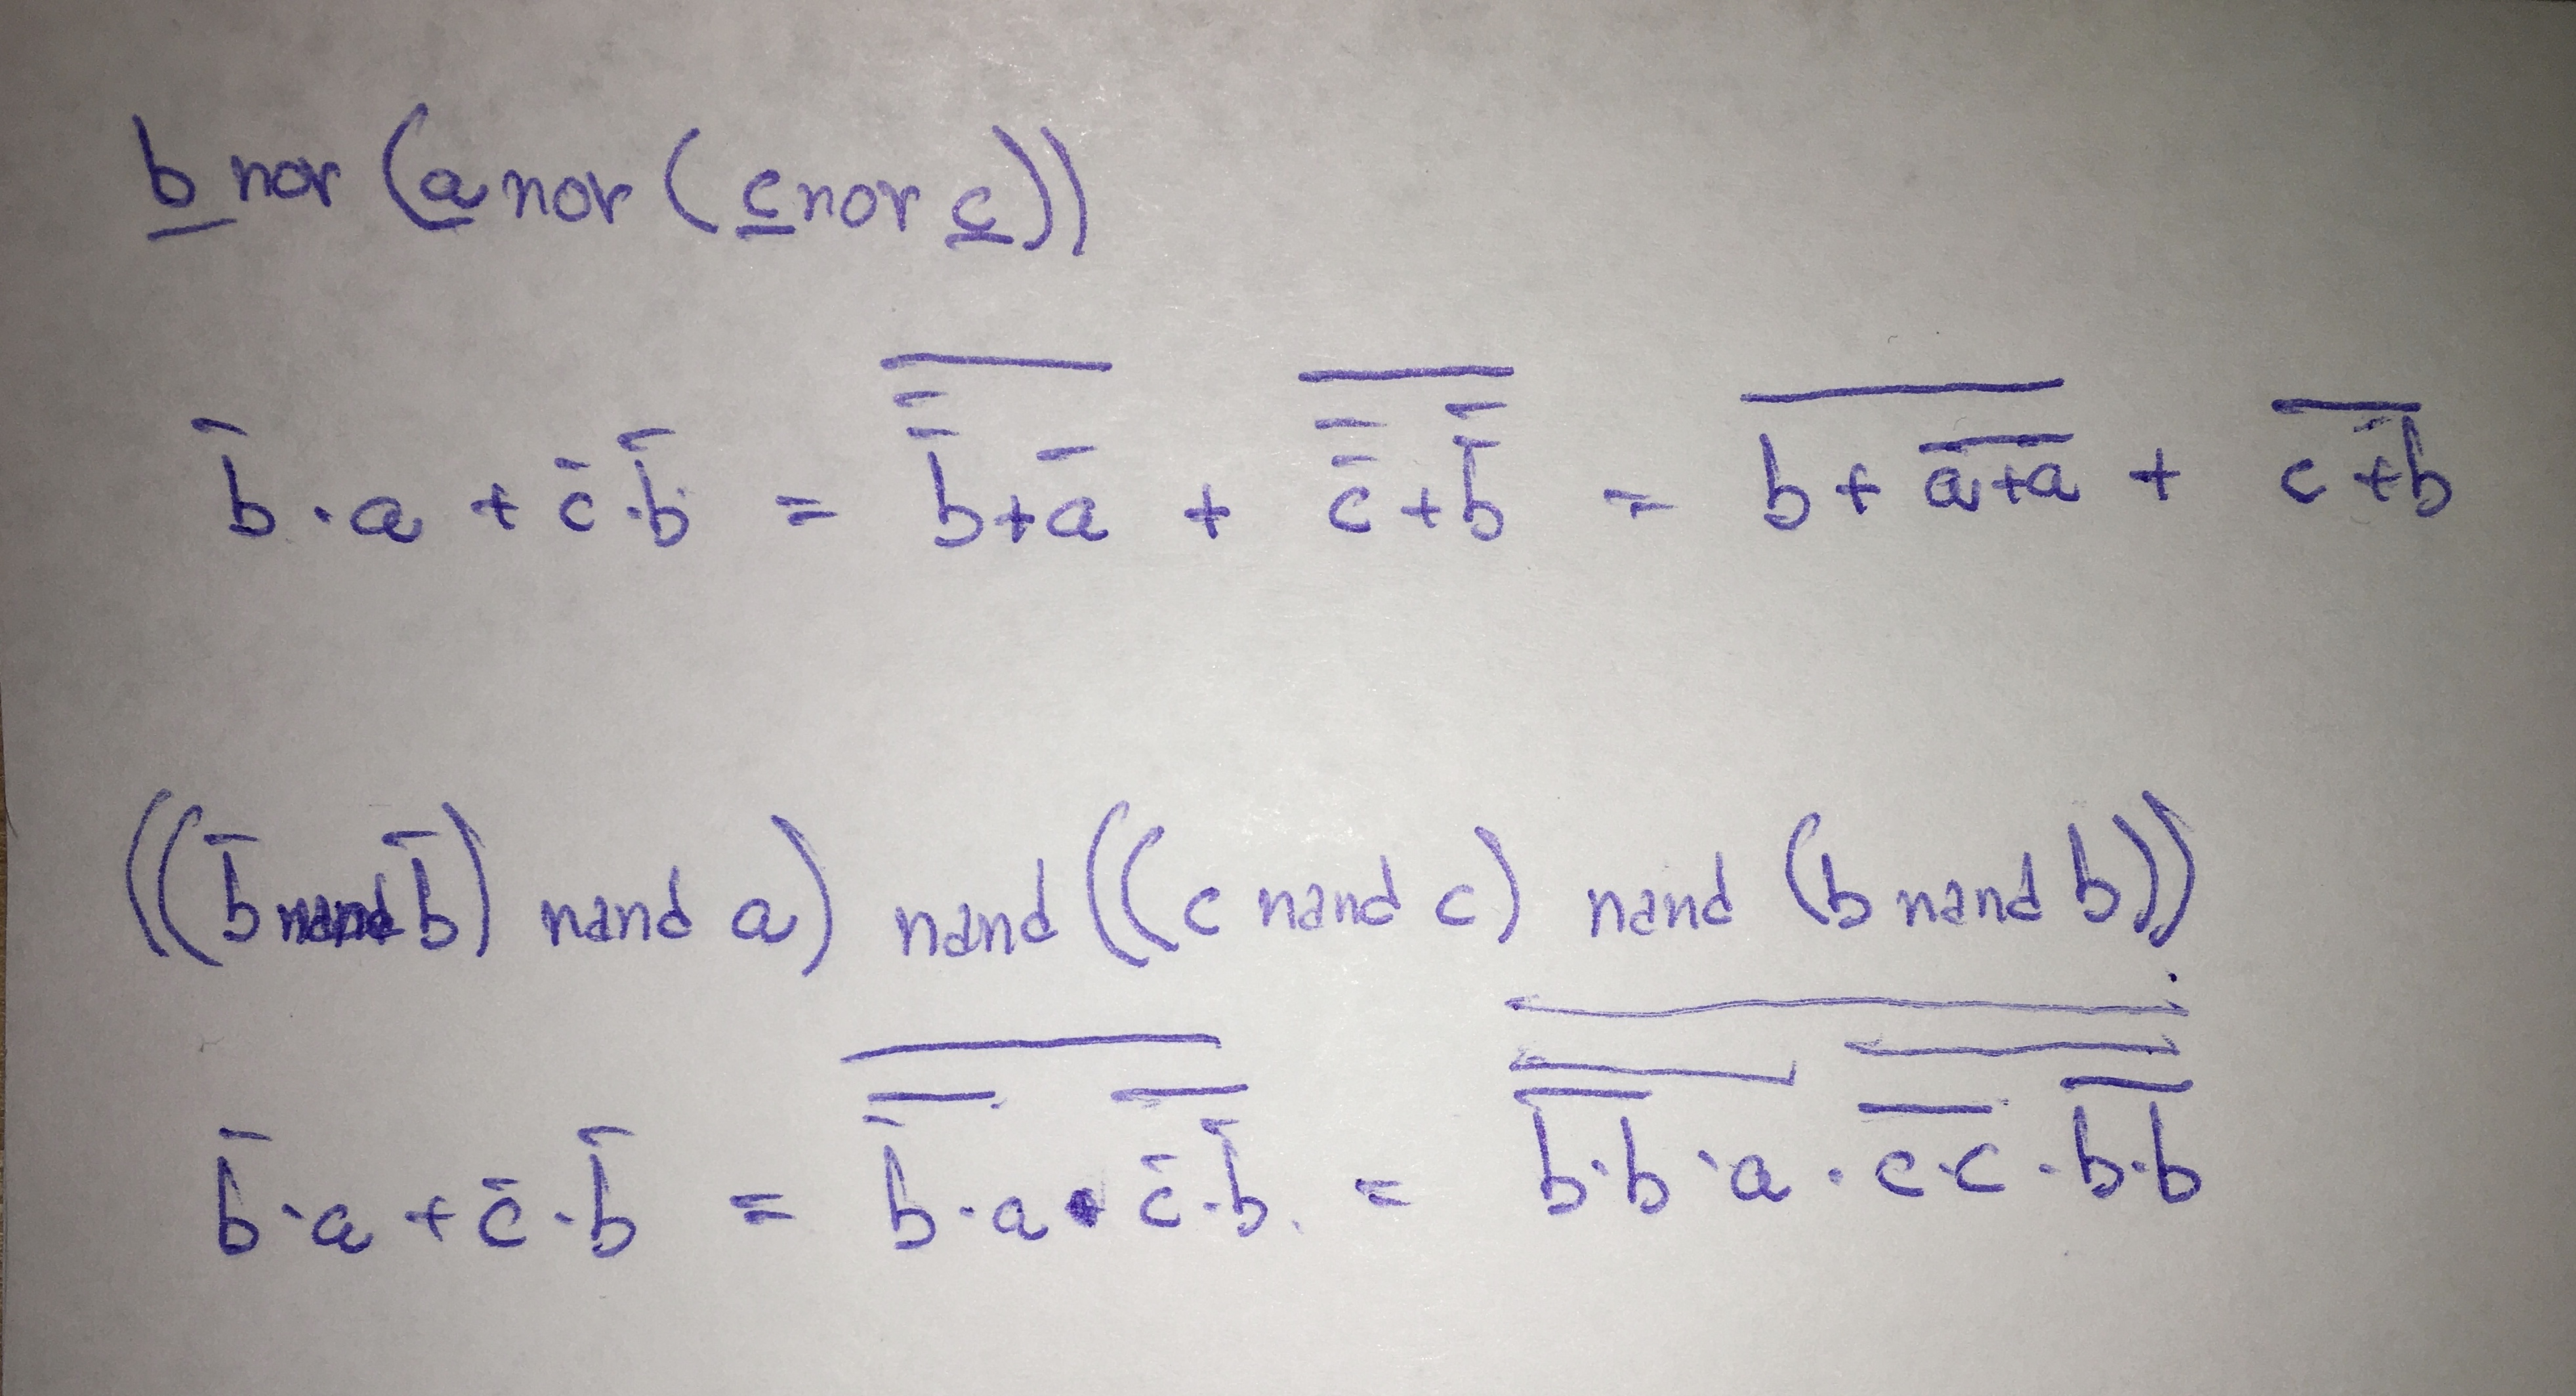 b nor (a nor (c nor c))
b̄ · a + c̄ · b̄ = \overline{\bar{\bar{\bar{b}}} + ā} + \overline{\bar{\bar{\bar{c}}} + \bar{\bar{b}}} = \overline{b + \overline{a + a}} + \overline{c + b}
((b̄ nand b̄) nand a) nand ((c nand c) nand (b nand b))
b̄ · a + c̄ · b̄ = \overline{\overline{b̄ · a} · \overline{c̄ · b̄}} = \overline{\overline{\overline{b · b} · a} · \overline{\overline{c · c} · \overline{b · b}}}